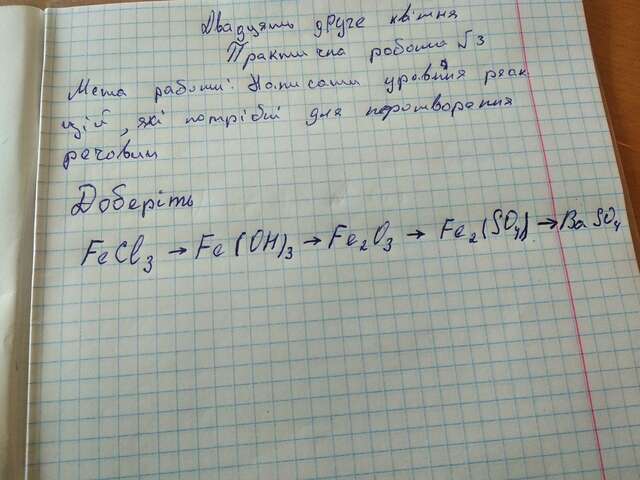 Двадцять друге квітня
Практична робота №3
Мета работи: Написати уравняня реак
цій, які потрібні для перетворення
речовин
Доберіть
FeCl₃ → Fe(OH)₃ → Fe₂O₃ → Fe₂(SO₄) → BaSO₄